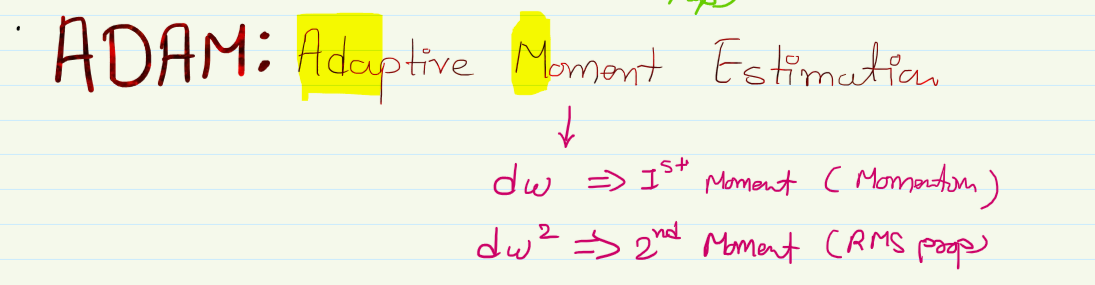 ADAM: Adaptive Moment Estimation
↓
dw ⇒ Ist Moment (Momentum)
dw² ⇒ 2nd Moment (RMS prop)